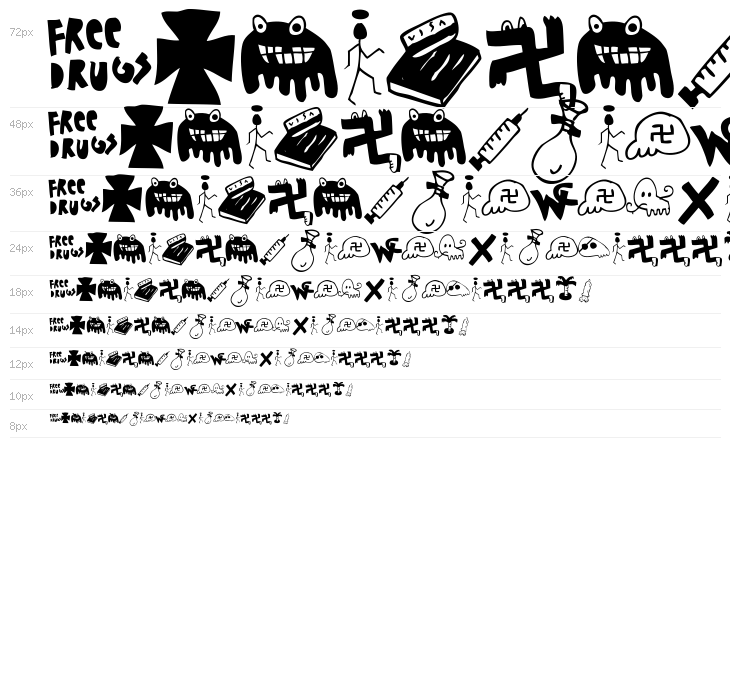 72px
FREE
DRUGS
VISA
48px
FREE
DRUGS
VISA
36px
FREE
DRUGS
VISA
24px
FREE
DRUGS
18px
FREE
DRUGS
14px
FREE
DRUGS
12px
FREE
DRUGS
10px
FREE
DRUGS
8px
FREE
DRUGS